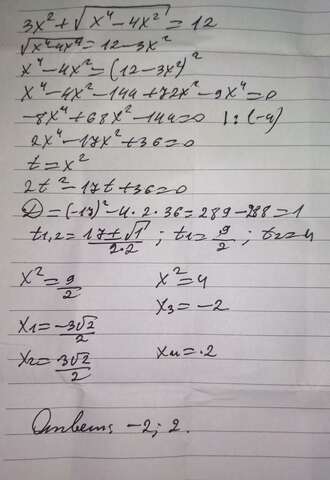 3x² + √(x⁴ - 4x²) = 12
√(x⁴ - 4x²) = 12 - 3x²
x⁴ - 4x² = (12 - 3x²)²
x⁴ - 4x² - 144 + 72x² - 9x⁴ = 0
-8x⁴ + 68x² - 144 = 0 |:(-4)
2x⁴ - 17x² + 36 = 0
t = x²
2t² - 17t + 36 = 0
D = (-17)² - 4·2·36 = 289 - 288 = 1
t1,2 = (17 ± √1)/(2·2); t1 = 9/2; t2 = 4
x² = 9/2 x² = 4
x3 = -2
x1 = -3√2/2
x2 = 3√2/2 x4 = 2
Ответ: -2; 2.